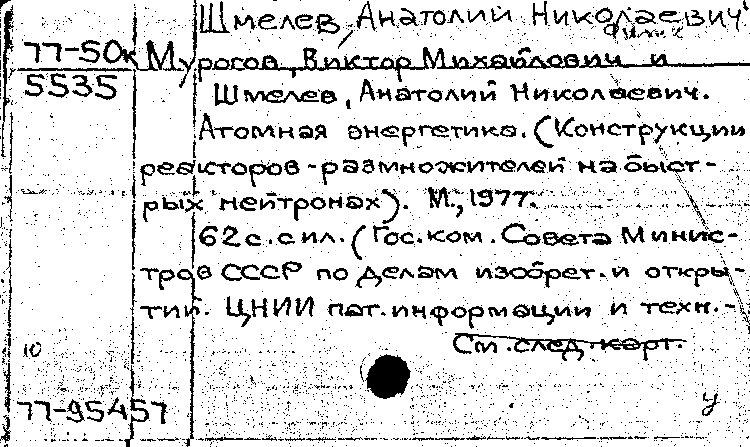 Шмелев, Анатолий Николаевич
физик
77-50к Мурогов, Виктор Михайлович и
5535 Шмелев, Анатолий Николаевич.
Атомная энергетика. (Конструкции
реакторов-размножителей на быст-
рых нейтронах). М., 1977.
62 с. с ил. (Гос. ком. Совета Минис-
тров СССР по делам изобрет. и откры-
тий. ЦНИИ пат. информации и техн.-
10 См. след. карт.
77-95457 У